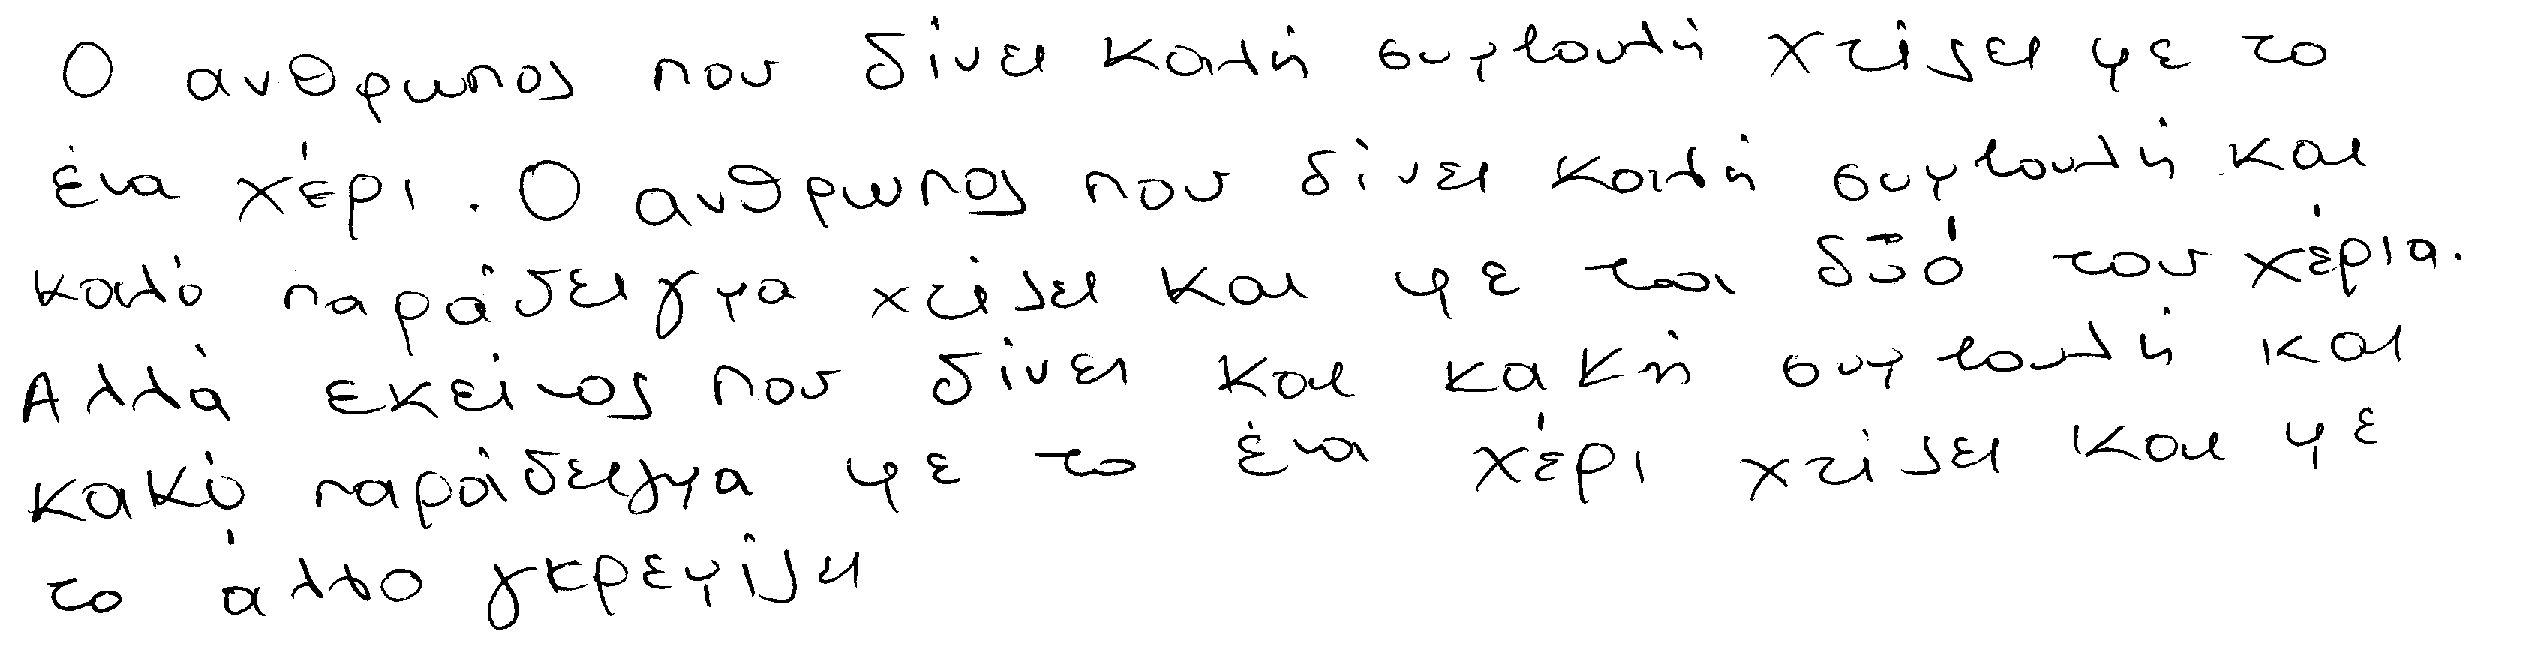 Ο ανθρωπος που δίνει καλή συμβουλή χτίζει με το
ένα χέρι. Ο ανθρωπος που δίνει καλή συμβουλή και
καλό παράδειγμα χτίζει και με τα δύό του χέρια.
Αλλά εκείνος που δίνει και κακή συμβουλή και
κακό παράδειγμα με το ένα χέρι χτίζει και με
το άλλο γκρεμίζει